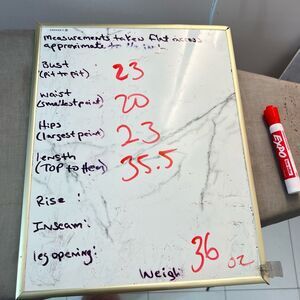 measurements taken flat across
approximate to the inch
Bust
(Pit to Pit) 23
waist
(smallest point) 20
Hips
(largest point) 23
Length
(TOP to Hem) 35.5
Rise :
Inseam :
leg opening :
Weight 36 oz
EXPO